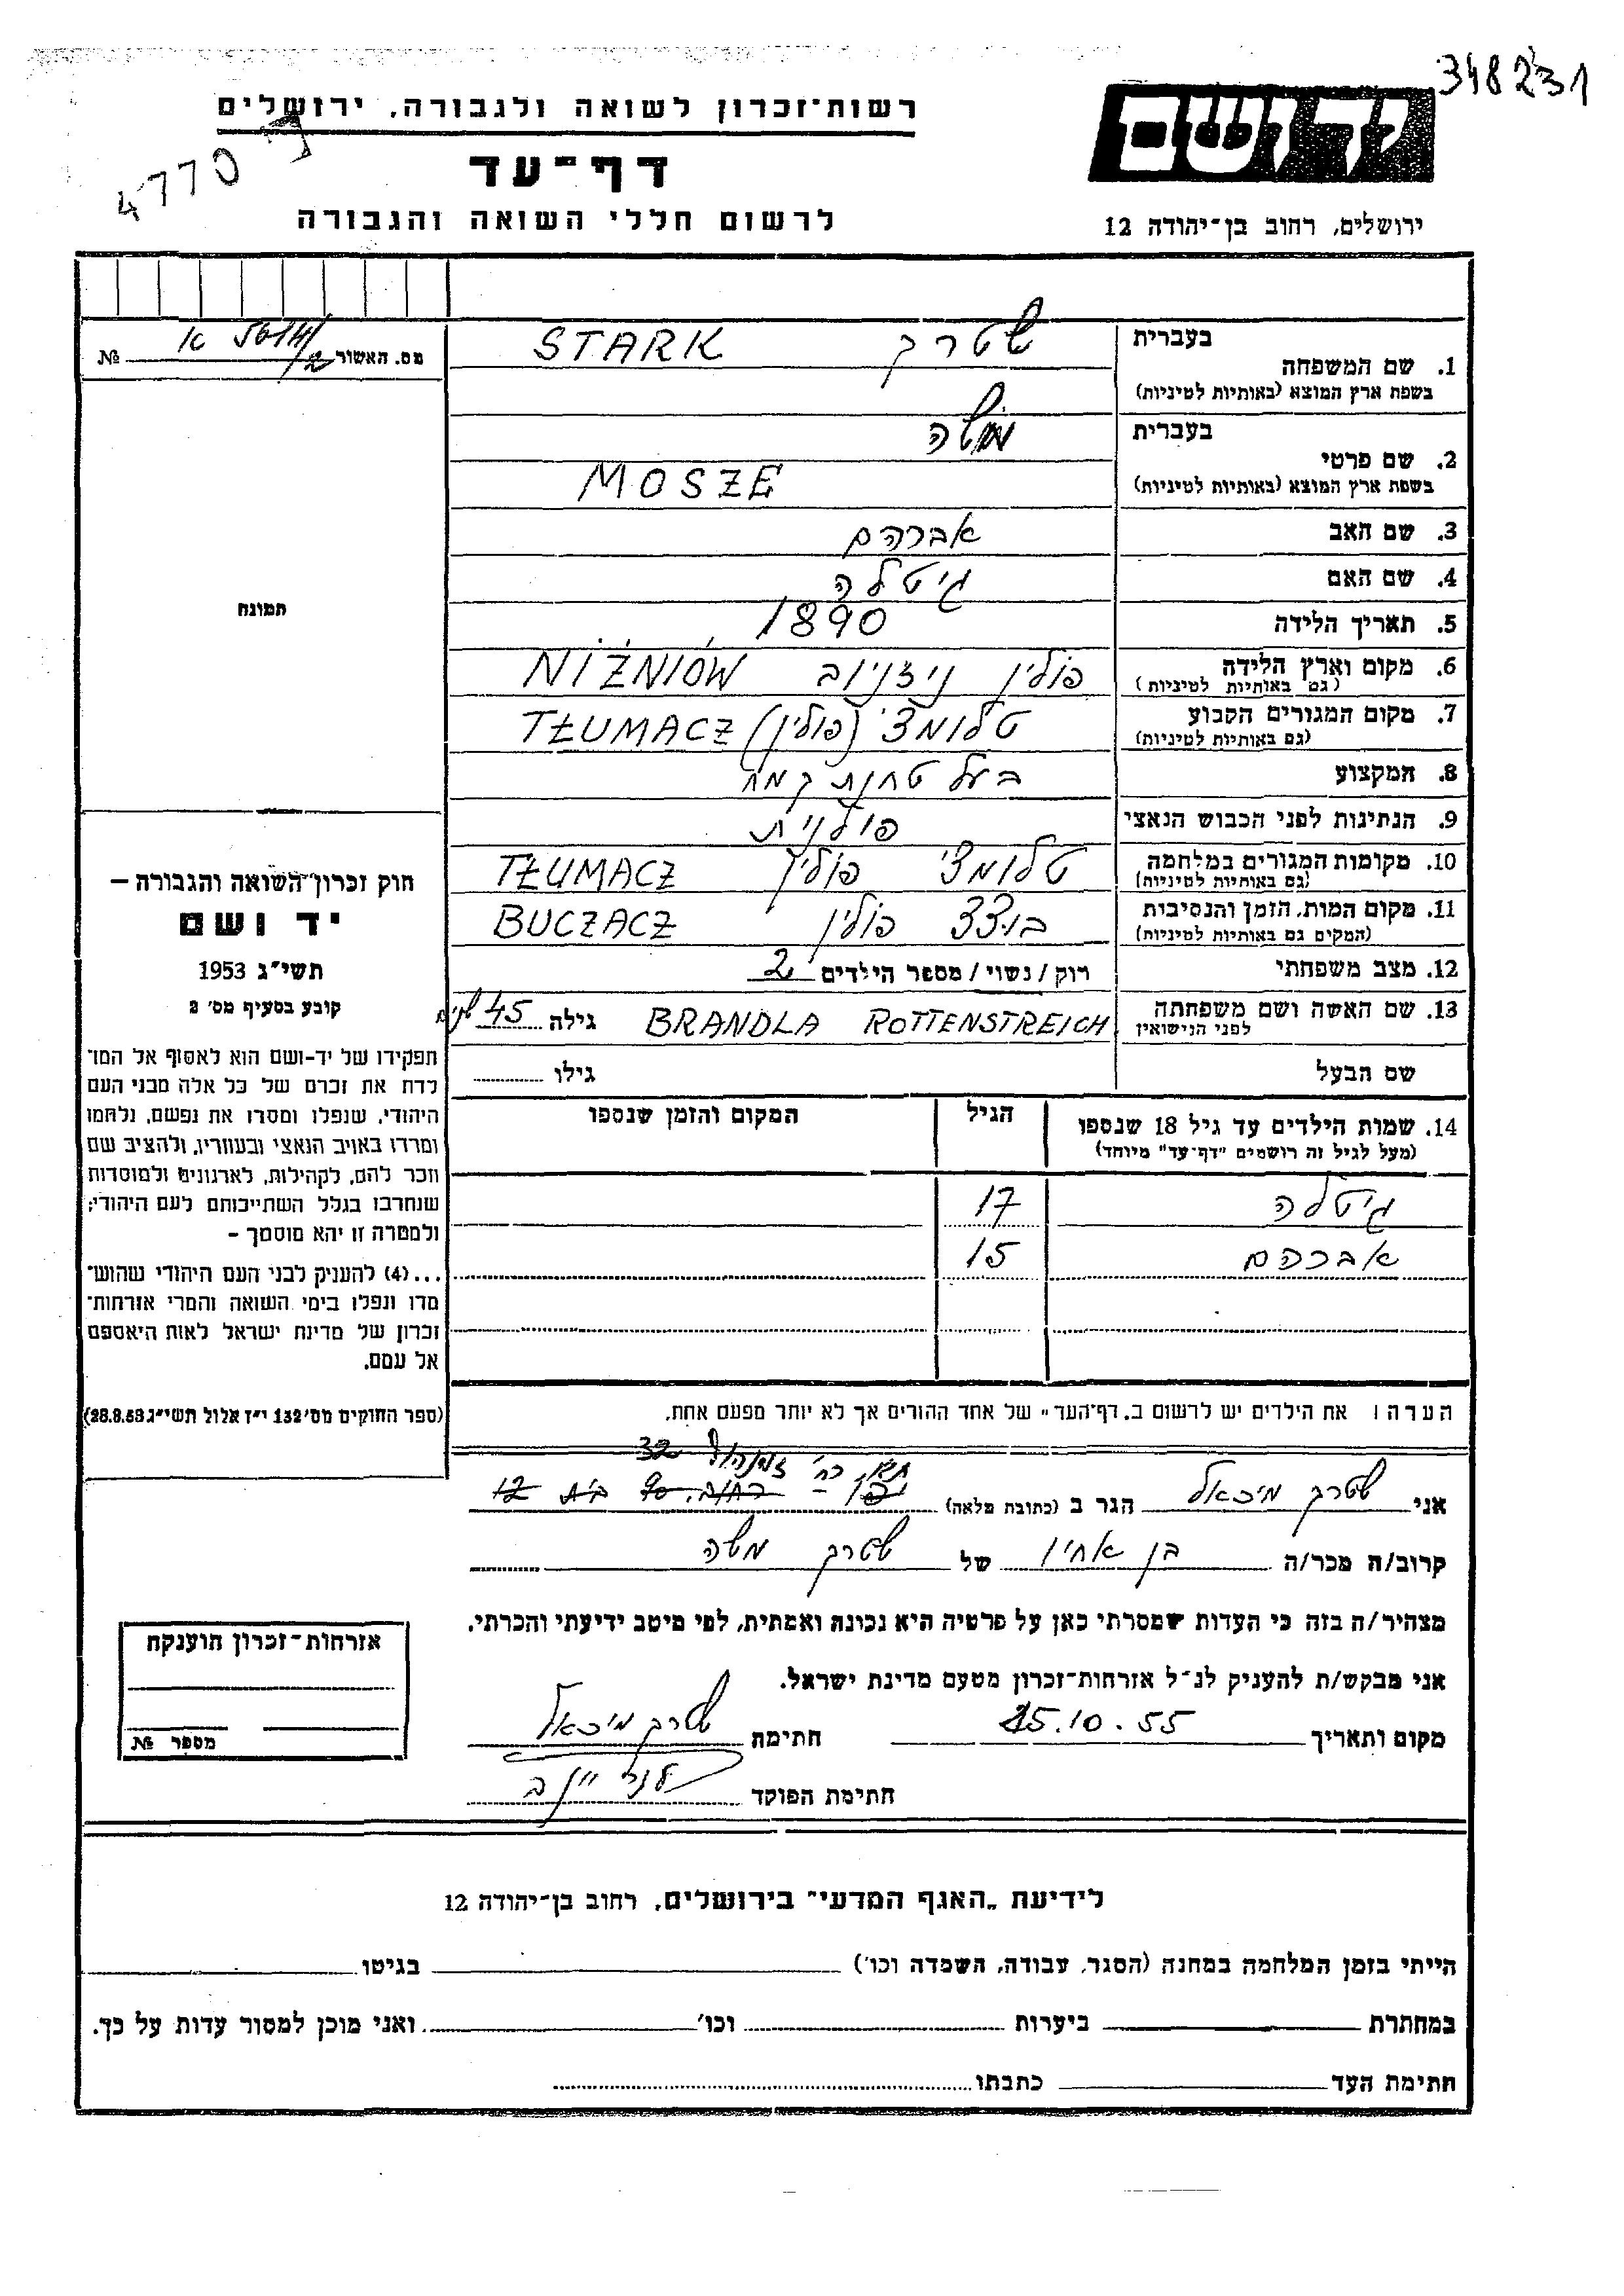 348231
יד ושם
רשות־זכרון לשואה ולגבורה, ירושלים
4770
דף־עד
ירושלים, רחוב בן־יהודה 12
לרשום חללי השואה והגבורה
מס. האשור № 5614/2 א
1. שם המשפחה
בעברית שטרק STARK
בשפת ארץ המוצא (באותיות לטיניות)
2. שם פרטי
בעברית משה
בשפת ארץ המוצא (באותיות לטיניות) MOSZE
3. שם האב אברהם
4. שם האם גיטלה
5. תאריך הלידה 1890
6. מקום וארץ הלידה פולין ניזניוב NIŻNIÓW
(גם באותיות לטיניות)
7. מקום המגורים הקבוע טלומצ' (פולין) TŁUMACZ
(גם באותיות לטיניות)
8. המקצוע בעל טחנת קמח
9. הנתינות לפני הכבוש הנאצי פולנית
10. מקומות המגורים במלחמה טלומצ' פולין TŁUMACZ
(גם באותיות לטיניות)
11. מקום המות, הזמן והנסיבות בוצצ פולין BUCZACZ
(המקום גם באותיות לטיניות)
12. מצב משפחתי רוק / נשוי / מספר הילדים 2
13. שם האשה ושם משפחתה BRANDLA ROTTENSTREICH גילה 45 שנים
לפני הנישואין
שם הבעל גילו
14. שמות הילדים עד גיל 18 שנספו הגיל המקום והזמן שנספו
(מעל לגיל זה רושמים "דף־עד" מיוחד)
גיטלה 17
אברהם 15
הערה: את הילדים יש לרשום ב„דף־העד" של אחד ההורים אך לא יותר מפעם אחת.
32
אני שטרק מיכאל הגר ב (כתובת מלאה) רחוב 90 בית 12
קרוב/ה מכר/ה בן אחיו של שטרק משה
מצהיר/ה בזה כי העדות שמסרתי כאן על פרטיה היא נכונה ואמתית, לפי מיטב ידיעתי והכרתי.
אני מבקש/ת להעניק לנ־ל אזרחות־זכרון מטעם מדינת ישראל.
מקום ותאריך 25.10.55 חתימת שטרק מיכאל
חתימת הפוקד
תמונה
חוק זכרון־השואה והגבורה –
יד ושם
תשי"ג 1953
קובע בסעיף מס' 2
תפקידו של יד-ושם הוא לאסוף אל המו־
לדת את זכרם של כל אלה מבני העם
היהודי, שנפלו ומסרו את נפשם, נלחמו
ומרדו באויב הנאצי ובעוזריו, ולהציב שם
וזכר להם, לקהילות, לארגונים ולמוסדות
שנחרבו בגלל השתייכותם לעם היהודי;
ולמטרה זו יהא מוסמך –
...(4) להעניק לבני העם היהודי שהוש־
מדו ונפלו בימי השואה והמרי אזרחות־
זכרון של מדינת ישראל לאות היאספם
אל עמם.
(ספר החוקים מס' 132 י"ז אלול תשי"ג 28.8.53)
אזרחות־זכרון הוענקה
מספר №
לידיעת „האגף המדעי" בירושלים, רחוב בן־יהודה 12
הייתי בזמן המלחמה במחנה (הסגר, עבודה, השמדה וכו') בגיטו
במחתרת ביערות וכו' ואני מוכן למסור עדות על כך.
חתימת העד כתבתו